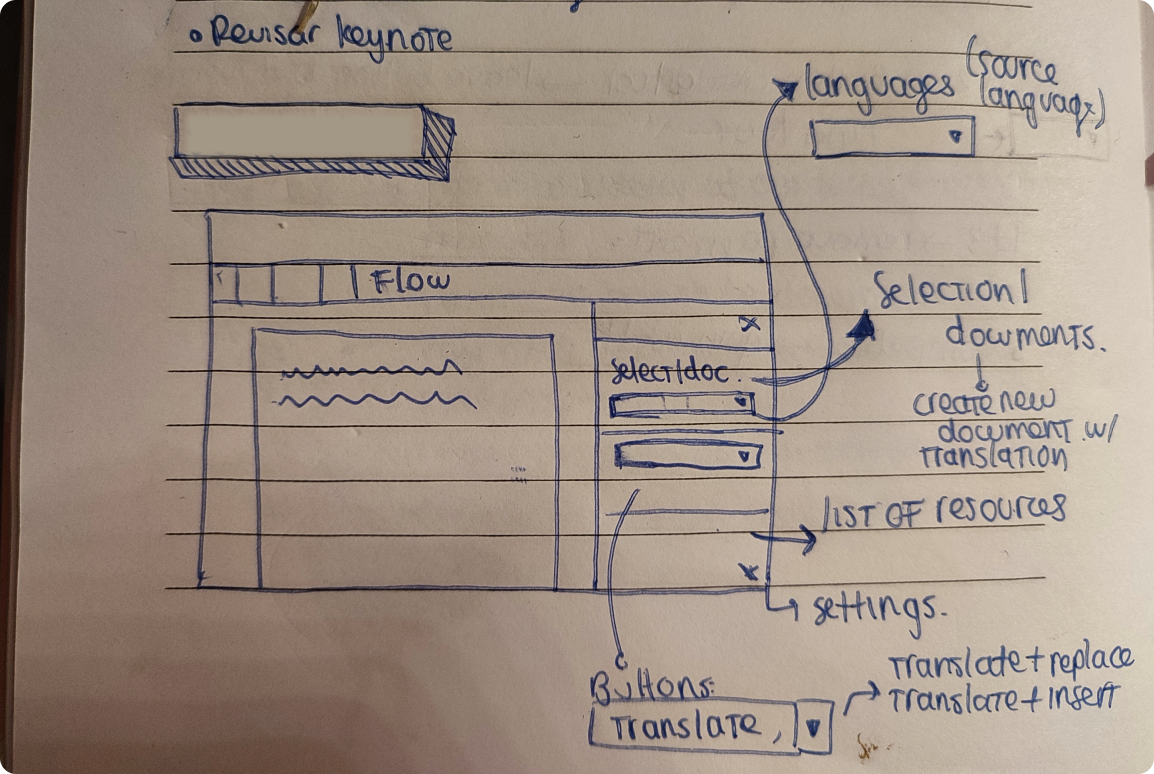 • Revisar keynote
languages (source
language)
Flow
Selection/
documents.
select/doc.
create new
document w/
translation
list of resources
settings.
Buttons:
Translate,
Translate + replace
Translate + insert